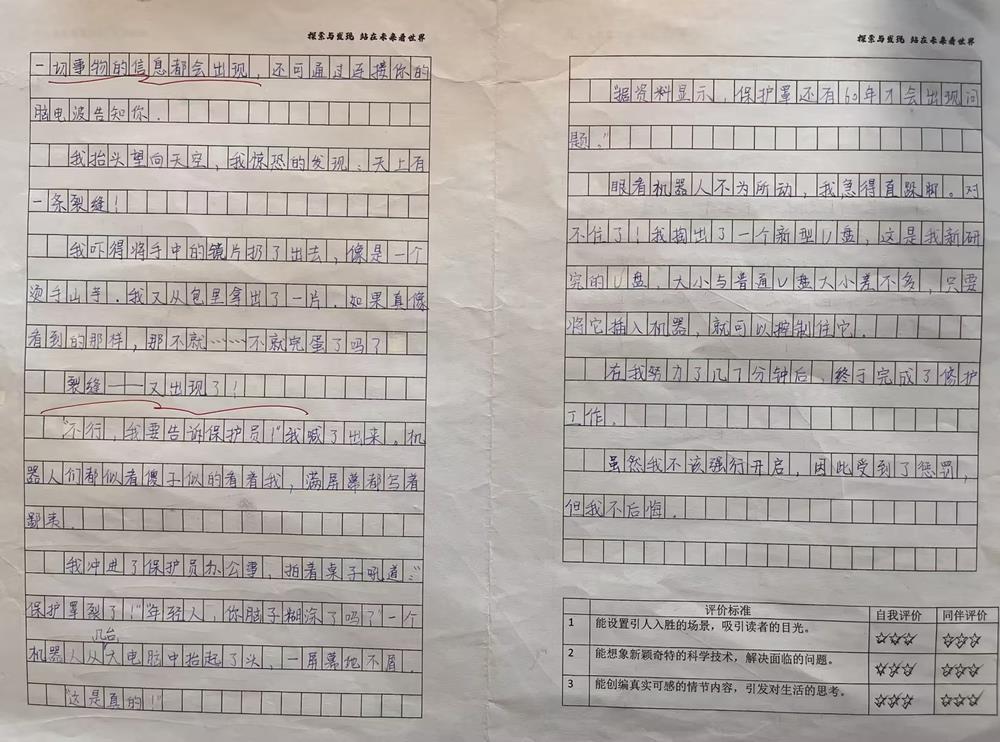 探索与发现 站在未来看世界
一切事物的信息都会出现，还可通过连接你的
脑电波告知你．
我抬头望向天空，我惊恐的发现：天上有
一条裂缝！
我吓得将手中的镜片扔了出去，像是一个
烫手山芋．我又从包里拿出了一片．如果真像
看到的那样，那不就……不就完蛋了吗？
裂缝——又出现了！
“不行，我要告诉保护员！”我喊了出来。机
器人们都似看傻子似的看着我，满屏幕都写着
鄙夷．
我冲进了保护员办公室，拍着桌子吼道：“
保护罩裂了！”“年轻人，你脑子糊涂了吗？”一个
几台
机器人从大电脑中抬起了头，一屏幕地不屑．
“这是真的！”
探索与发现 站在未来看世界
“据资料显示，保护罩还有60年才会出现问
题．”
眼看机器人不为所动，我急得直跺脚。对
不住了！我掏出了一个新型U盘，这是我新研
究的U盘，大小与普通U盘大小差不多，只要
将它插入机器，就可以控制住它．
在我努力了几十分钟后，终于完成了修护
工作．
虽然我不该强行开启，因此受到了惩罚，
但我不后悔．
评价标准 自我评价 同伴评价
1 能设置引人入胜的场景，吸引读者的目光。
2 能想象新颖奇特的科学技术，解决面临的问题。
3 能创编真实可感的情节内容，引发对生活的思考。